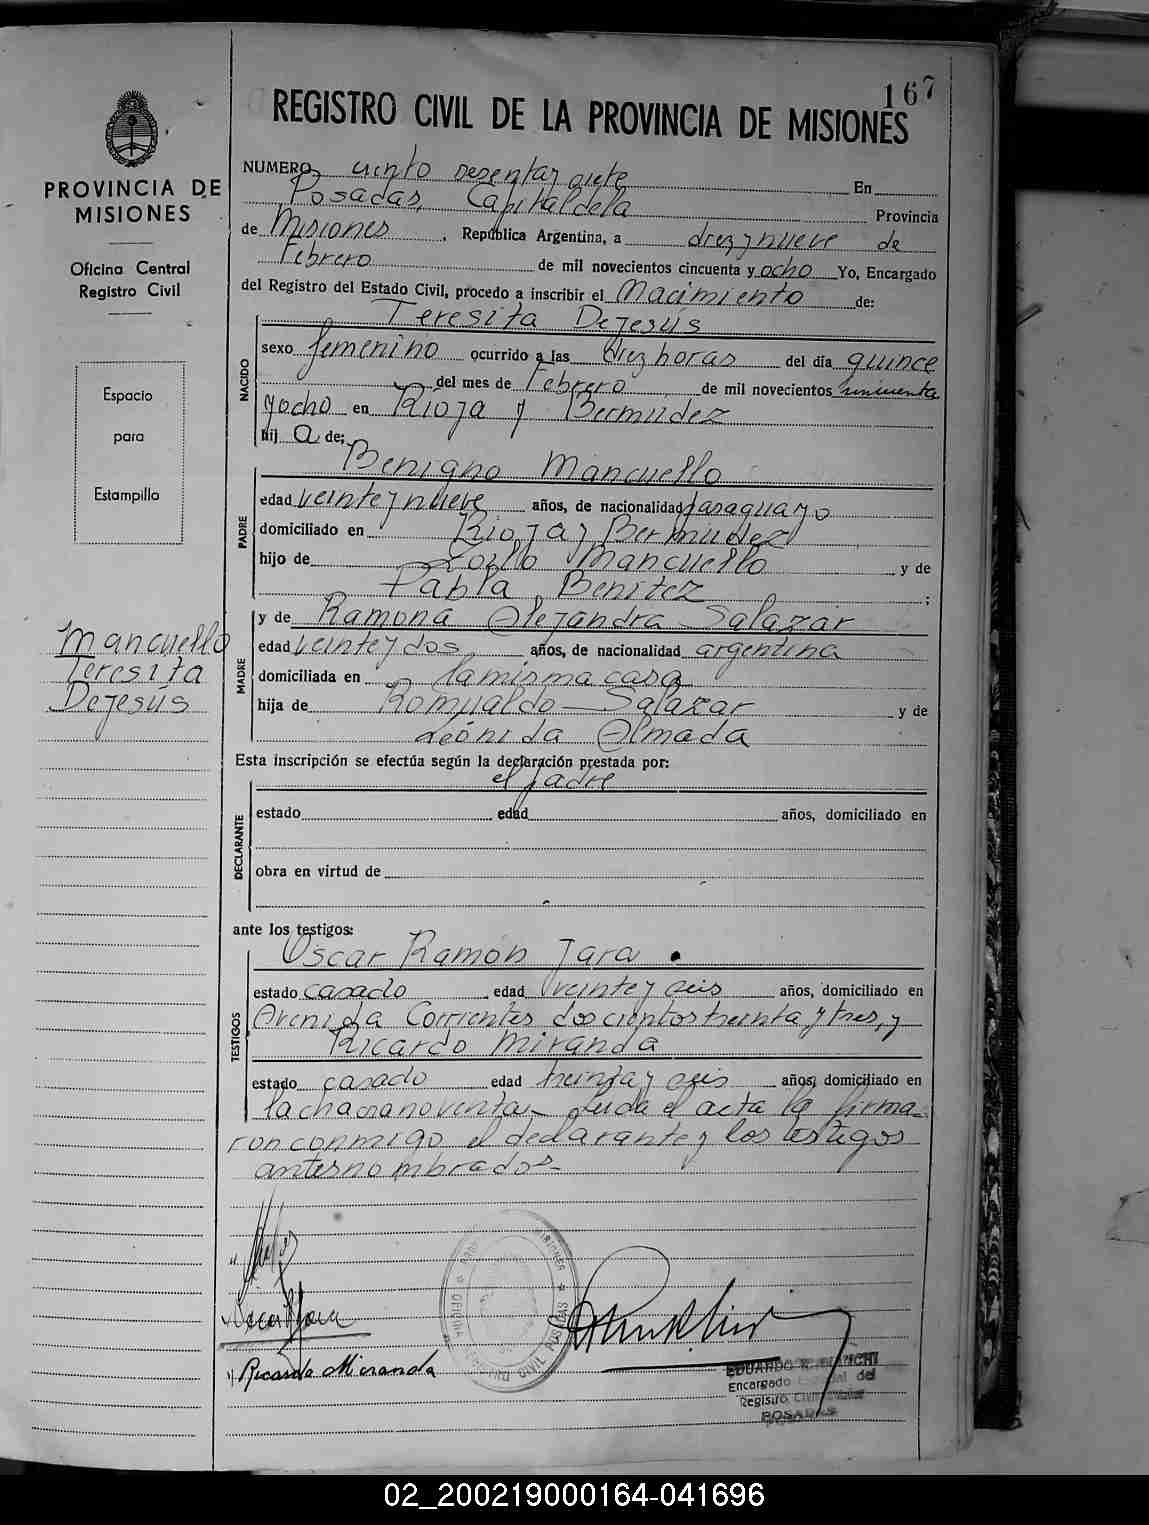 167
REGISTRO CIVIL DE LA PROVINCIA DE MISIONES
PROVINCIA DE
MISIONES
Oficina Central
Registro Civil
Espacio
para
Estampilla
Mancuello
Teresita
Dejesús
NUMERO ciento sesentay siete En
Posadas, Capital dela Provincia
de Misiones, República Argentina, a diez y nueve de
Febrero de mil novecientos cincuenta y ocho Yo, Encargado
del Registro del Estado Civil, procedo a inscribir el Nacimiento de:
Teresita Dejesús
NACIDO
sexo femenino ocurrido a las diez horas del día quince
del mes de Febrero de mil novecientos cincuenta
y ocho en Rioja y Bermúdez
hij a de:
Benigno Mancuello
PADRE
edad veinte y nueve años, de nacionalidad paraguayo
domiciliado en Rioja y Bermudez
hijo de Zoilo Mancuello y de
Pabla Benitez ;
y de Ramona Alejandra Salazar
MADRE
edad veinte y dos años, de nacionalidad argentina
domiciliada en la misma casa
hija de Romualdo Salazar y de
Leónida Almada
Esta inscripción se efectúa según la declaración prestada por:
el padre
DECLARANTE
estado edad años, domiciliado en
obra en virtud de
ante los testigos:
Oscar Ramón Jara
TESTIGOS
estado casado edad veinte y seis años, domiciliado en
Avenida Corrientes doscientos treinta y tres, y
Ricardo Miranda
estado casado edad treinta y seis años, domiciliado en
la chacra noventa- Leida el acta la firma-
ron conmigo el declarante y los testigos
antes nombrados-
Oscar R Jara
Ricardo Miranda
OFICINA CIVIL POSADAS MISIONES
EDUARDO R. BIANCHI
Encargado del
Registro Civil
POSADAS
02_200219000164-041696